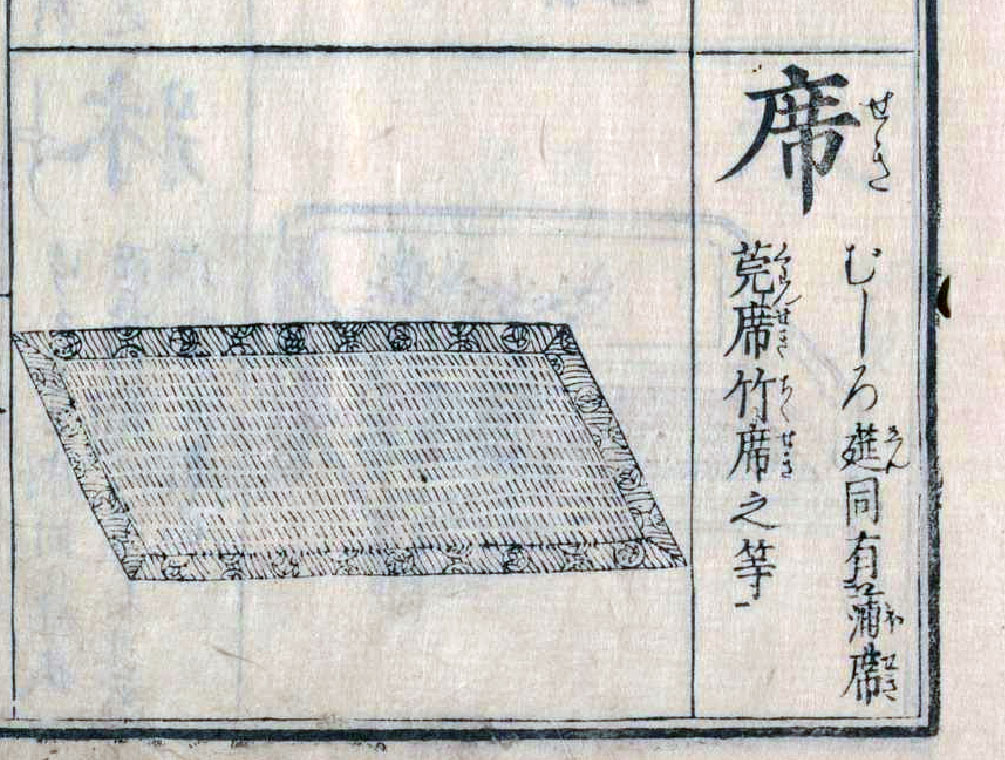 席
せき
むしろ莚同有二蒲席
えん
ほせき
莞席竹席之等一
せき
ちくせき